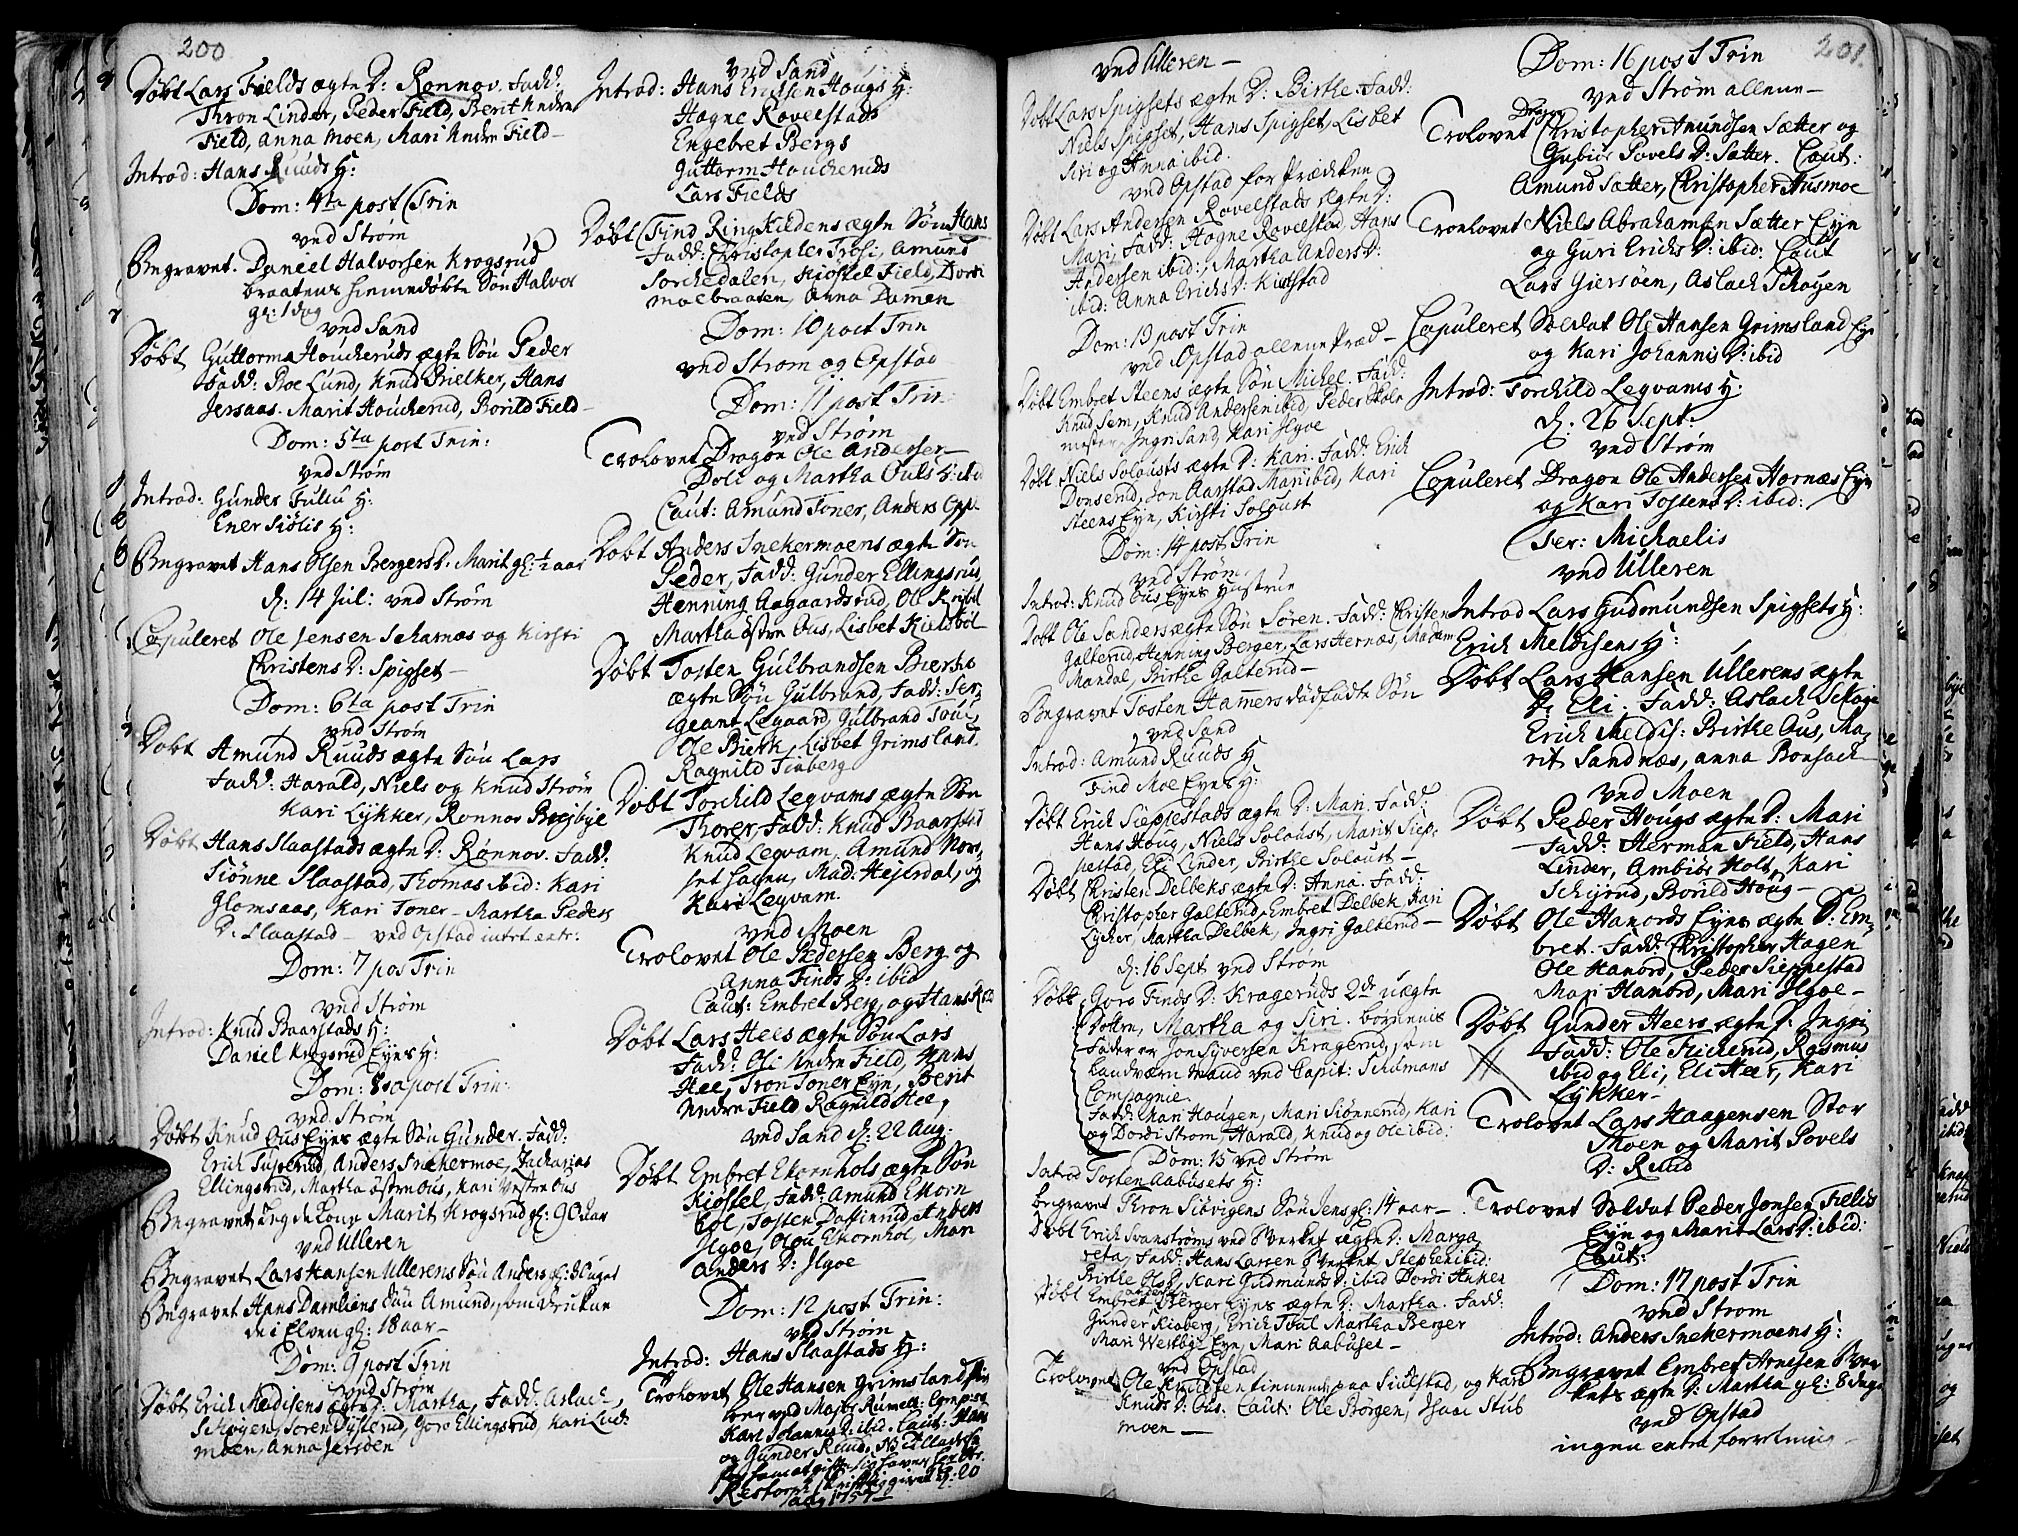 200
Døbt Lars Fields ægte D: Rønnov. Fadd:
Thron Linder, Peder Field, Berit Nedre
Field, Anna Moen, Mari Nedre Field
Introd: Hans Ruuds H:
Dom: 4ta post Trin
ved Strøm
Begravet. Daniel Halvorsen Krogsrud
braatens hiemedøbte Søn Halvor
gl: 1 dag
ved Sand
Døbt Guttorm Houcheruds ægte Søn Peder
Fadd: Roe Lund, Knud Prielker, Hans
Jersaas. Marit Houcherud, Borild Field
Dom: 5ta post Trin:
ved Strøm
Introd: Gunder Fulu H:
Ener Siølis H:
Begravet Hans Olsen Bergers D. Marit gl: ½ aar
d: 14 Jul: ved Strøm
Copuleret Ole Jensen Scharnæs og Kirsti
Christens D: Spigset
Dom: 6ta post Trin
ved Strøm
Døbt Amund Ruuds ægte Søn Lars
Fadd: Harald, Niels og Knud Strøm
Kari Lykker, Ronnov
Døbt Hans Slaastads ægte D: Rønnov. Fadd:
Siønne Slaastad, Thomas ibid: Kari
Glomsaas, Kari Toner – Martha Peders
D. Slaastad – ved Opstad intet extr:
Dom: 7 pos Trin
ved Strøm
Introd: Knud Baarstads H:
Daniel Krogsrud Eyes H:
Dom: 8va post Trin:
ved Strøm
Døbt Knud Ous Eyes ægte Søn Gunder. Fadd:
Erich Anders Snekermoe, Zacharias
Ellingsrud, Martha Østre Ous, Kari Vestre Ous
Begravet Marit Krogsrud gl: 90 aar
ved Ulleren
Begravet Lars Hansen Ullerens Søn Anders gl: 3 Uger
Begravet Hans Damliens Søn Amund, som drukne
de i Elven gl: 18 aar
Dom: 9 post Trin
ved Strøm
Døbt Erich Meldisens ægte D: Martha, Fadd: Aslach
Skøyen, Soren Goro Ellingsrud, Kari
moen, Anna Jersøen
ved Sand
Introd: Hans Erichsen Hougs H:
Hogne Rovelstads
Engebret Bergs
Guttorm Houcheruds
Lars Fields
Døbt Find Ring Kildens ægte Søn Hans
Fadd: Christopher Trosi, Amund
Sorchedalen, Kiostel Field, Dordi
moebraaten, Anna Damen
Dom: 10 post Trin
ved Strøm og Opstad
Dom: 11 post Trin
ved Strøm
Trolovet Dragon Ole Andersen
Dole og Martha Ouls D: ibid
Caut: Amund Toner, Anders
Døbt Anders Snekermoens ægte Søn
Peder, Fadd: Gunder Ellingsrud,
Henning Aagaardsrud, Ole
Martha Østre Ous, Lisbet Kiølsbøl
Døbt Tosten Gulbrandsen Bierke
ægte Søn Gulbrand, Fadd: Ser-
geant Legaard, Gulbrand
Ole Bierk, Lisbet Grimsland,
Ragnild Finberg
Døbt Torchild Legvams ægte Søn
Thorer, Fadd: Knud Baarstad
Knud Legvam, Amund Nors-
set hagen, Mad: Hesterdal, og
Kari Legvam.
ved Moen
Trolovet Ole Pedersen Berg og
Anna Finds D: ibid
Caut: Embret Berg, og Hans
Døbt Lars Hees ægte Søn Lars
Fadd: Oli Nedre Field, Hans
Hee, Tron Toner Eyn, Berit
Nedre Field Ragnild Hee,
ved Sand d: 22 Aug:
Døbt Embret Ekornhols ægte Søn
Kiøstel, Fadd: Amund Ekorn
hol, Tosten Anders
Ilgoe, Olou Ekornhol, Mari
Anders D: Ilgoe
Dom: 12 post Trin:
ved Strøm
Introd: Hans Slaastads H:
Trolovet Ole Hansen Grimsland
ved Major Comp: og
Kari Johannis D: ibid. Caut: Hans
og Gunder Ruud,
201.
ved Ulleren
Døbt Lars Spigsets ægte D: Birthe. Fadd:
Niels Spigset, Hans Spigset, Lisbet
Siri og Anna ibid.
ved Opstad for Prædiken
Døbt Lars Andersen Rovelstads ægte D:
Mari, Fadd: Hogne Rovelstad, Hans
Andersen ibid:, Martha Anders D:
ibid: Anna Erichs D: Kiølstad
Dom: 13 post Trin
ved Opstad allene Præd
Døbt Embret Steens ægte Søn Michel. Fadd:
Knud Sem, Knud Andersen ibid, Peder Skole
mester, Ingri Sand, Kari Ilgoe
Døbt Niels Solousts ægte D: Kari. Fadd: Erich
Donserud, Jon Aarstad Mari ibid, Kari
Steens Eyn, Kirsti Soloust
Dom: 14 post Trin
ved Strøm
Introd: Knud Ous Eyes Hustrue
Døbt Ole Sanders ægte Søn Søren. Fadd: Christen
Galterud, Henning Berger, Lars Hernæs, Madam
Mandal, Birthe Galterud
Begravet Tosten Hammers dødfødte Søn
ved Sand
Introd: Amund Ruuds H
Find Moe Eyes H:
Døbt Erich Sieppestads ægte D: Mari. Fadd:
Hans Houg, Niels Soloust, Marit Siep-
pestad, Eli Linder, Birthe Soloust
Døbt Christen Delbeks ægte D: Anna. Fadd:
Christopher Galterud, Embret Delbek, Kari
Lycker, Martha Delbek, Ingri Galterud
d: 16 Sept ved Strøm
Døbt Goro Finds D: Krageruds 2de uægte
Døttre, Martha og Siri. børnenis
Fader er Jon Syversen Kragerud, som
Landværn mand ved Capit: Schumans
Compagnie.
Fadd: Mari Hougen, Mari Siønnerud, Kari
og Dordi Strøm, Harald, Knud og Ole ibid:
Dom: 15 ved Strøm
Introd Tosten Aabusets H:
begravet Thron Siøvigens Søn Jens gl: 14 aar
Døbt Erich Svanstrøms ved Verket ægte D: Marga
reta, Fadd: Hans Larsen Verket, Stephen ibid:
Birthe Kari Gudmunds D: ibid Dordi Anken
Døbt Embret Berger Eyes ægte D: Martha. Fadd:
Gunder Kioberg, Erich Martha Berger
Mari Westbye Eyn, Mari Aabuset
ved Opstad
Trolovet Ole Knudsen paa Siølestad, og Kari
Knuds D: Ous. Caut: Ole Borgen, Isaac Stub
moen
Dom: 16 post Trin
ved Strøm allene
Trolovet Dragon Christopher Amundsen Sætter og
Gubiør Povels D: Sætter. Caut:
Amund Sætter, Christopher Husmoe
Trolovet Niels Abrahamsen Sætter Eyn
og Guri Erichs D: ibid: Caut
Lars Giersøen, Aslach Schøyen
Copuleret Soldat Ole Hansen Grimsland Eyn
og Kari Johannis D: ibid
Introd: Torchild Legvams H:
d: 26 Sept:
ved Strøm
Copuleret Dragon Ole Andersen Hornæs Eyn
og Kari Tostens D: ibid:
Fer: Michaelis
ved Ulleren
Introd Lars Gudmundsen Spigsets H:
Erich Meldisens H:
Døbt Lars Hansen Ullerens ægte
D. Eli. Fadd: Aslach Schøye
Erich Meldis: Birthe Ous, Ma-
rit Sandnæs, anna Bonsach
ved Moen
Døbt Peder Hougs ægte D: Mari
Fadd: Herman Field, Hans
Linder, Ambiør Holt, Kari
Schijrud, Borild Houg
Døbt Ole Hanords Eyes ægte S: Em-
bret. Fadd: Christopher Hagen
Ole Hanord, Peder Sieppestad
Mari Hanord, Mari Ilgoe
Døbt Gunder Heers ægte D: Ingri
Fadd: Ole Flickerud, Rasmus
ibid og Eli, Eli Heer, Kari
Lykker
Trolovet Lars Haagensen Stor
Moen og Marit Povels
D: Ruud
Trolovet Soldat Peder Jonsen Fields
Eyn og Marit Lars D: ibid:
Caut:
Dom: 17 post Trin
ved Strøm
Introd: Anders Snekermoens H:
Begravet Embret Arnesen Ver-
kets ægte D: Martha gl: 8 dage
ved Opstad
ingen extra forretning